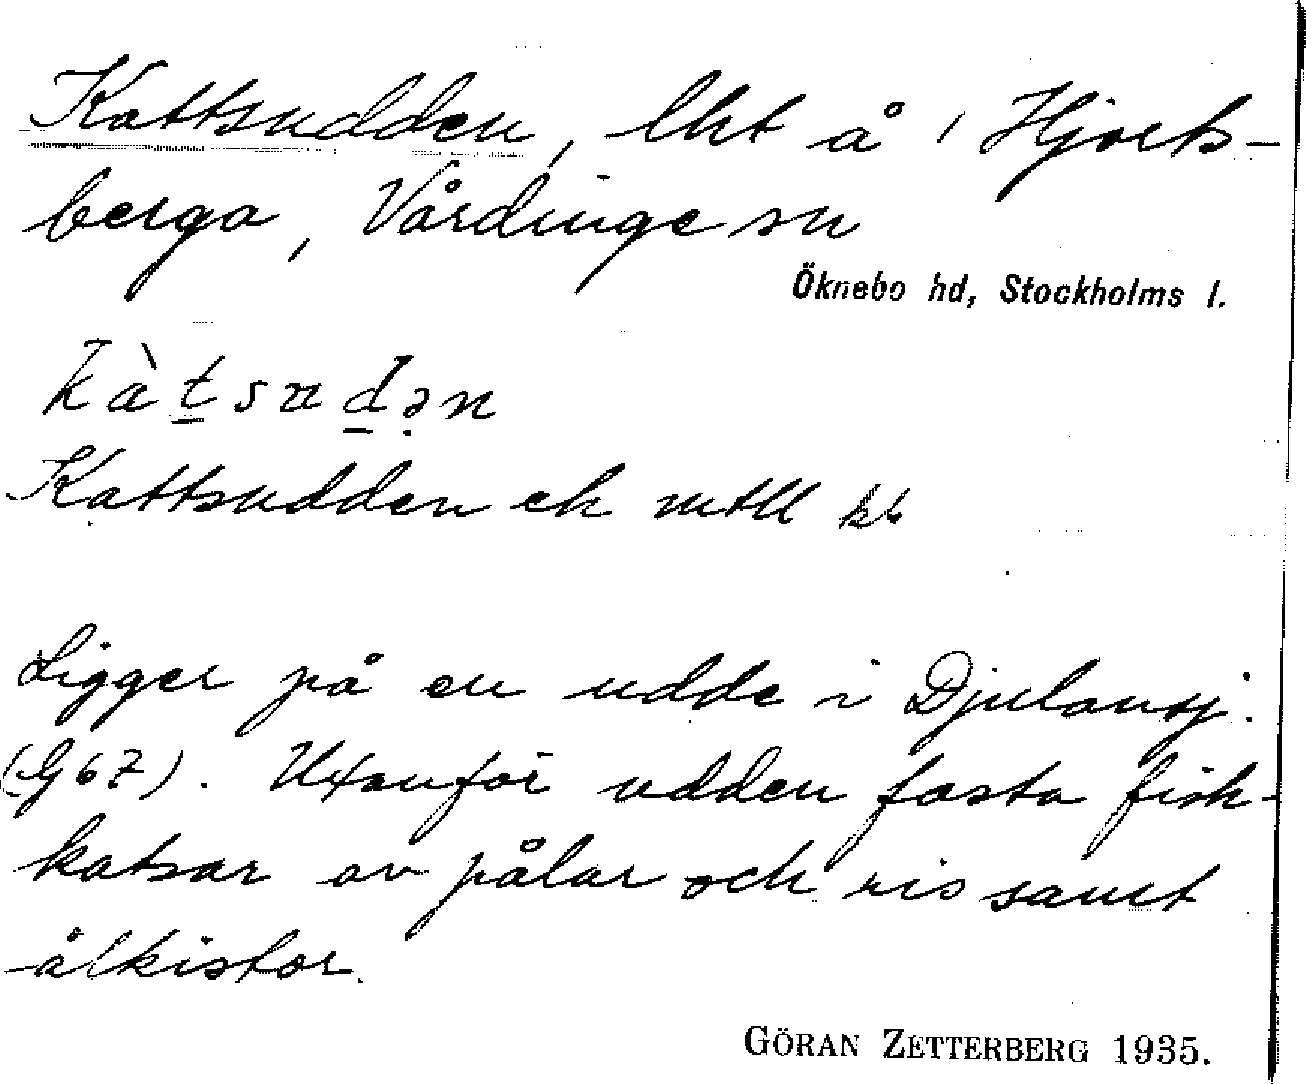 Kattsudden, lht å, Hjorts-
berga, Vårdinge sn
Öknebo hd, Stockholms l.
kàtsudən
Kattsudden ek mtll kb
Ligger på en udde i Djulausj.
(G67). Utanför udden fasta fisk-
katsar av pålar och ris samt
ålkistor.
GÖRAN ZETTERBERG 1935.